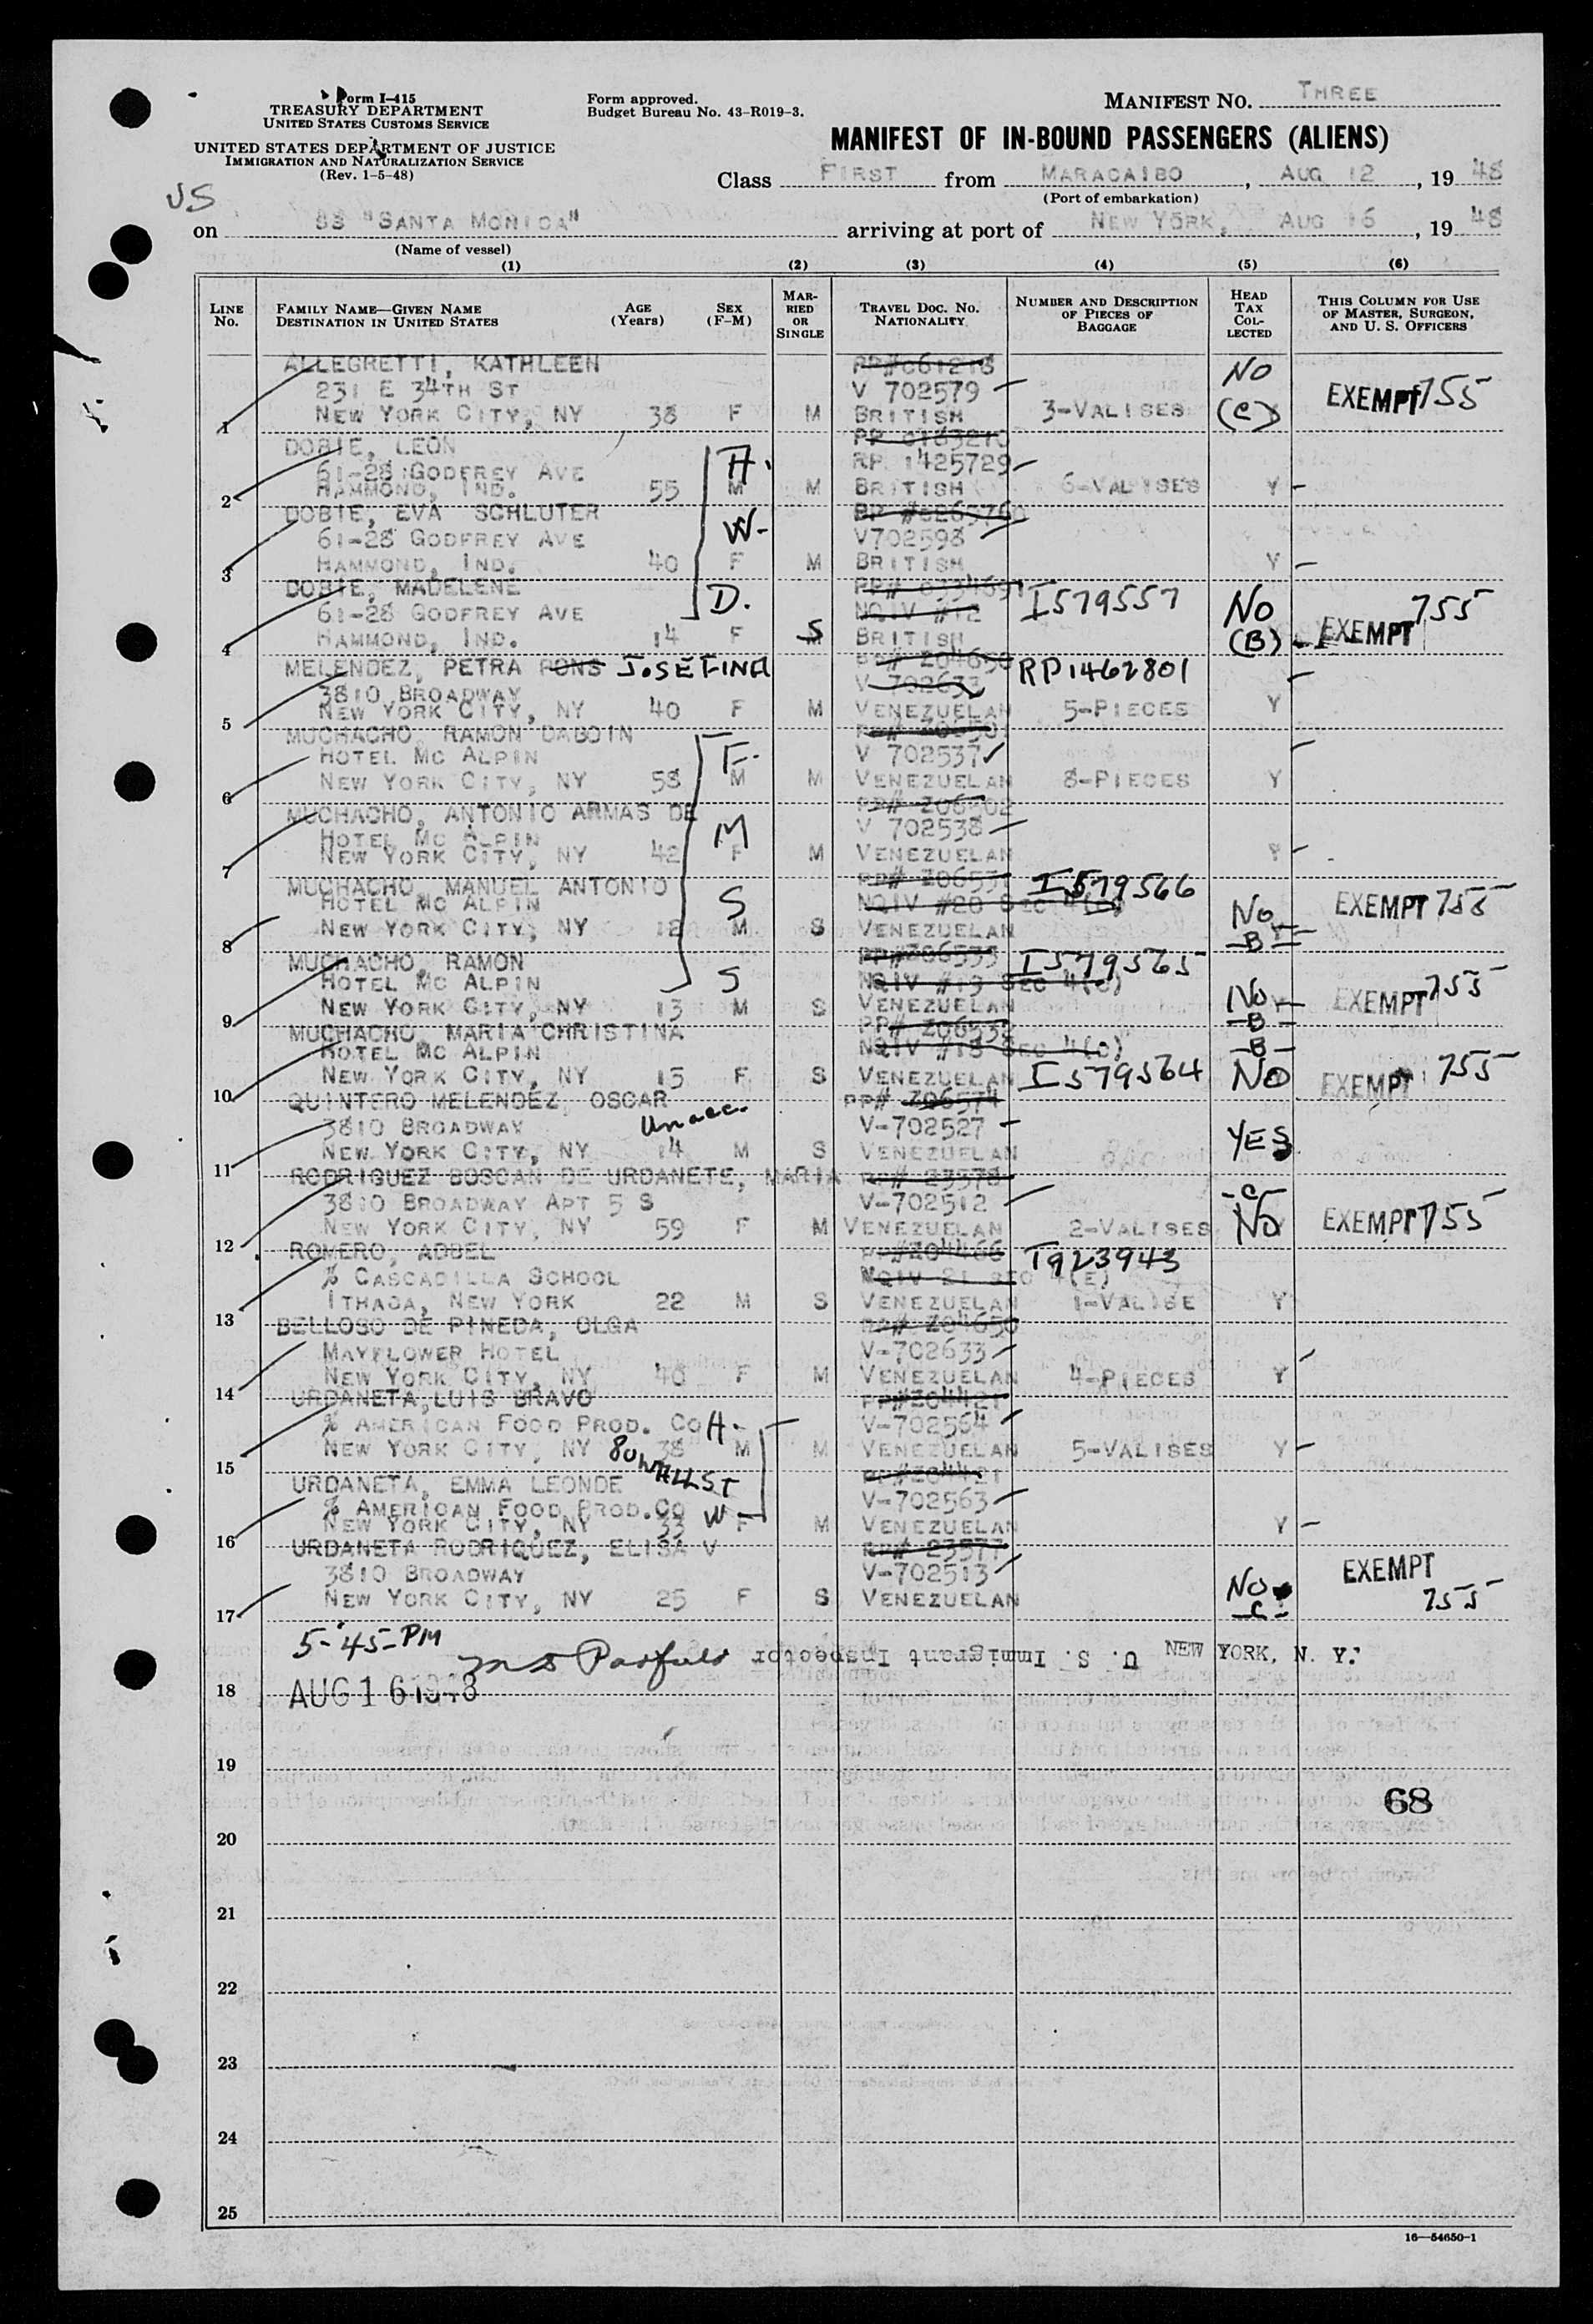 Form I-415
TREASURY DEPARTMENT
UNITED STATES CUSTOMS SERVICE
UNITED STATES DEPARTMENT OF JUSTICE
IMMIGRATION AND NATURALIZATION SERVICE
(Rev. 1-5-48)
Form approved.
Budget Bureau No. 43-R019-3.
MANIFEST NO. THREE
MANIFEST OF IN-BOUND PASSENGERS (ALIENS)
Class FIRST from MARACAIBO, AUG 12, 19 48
(Port of embarkation)
US
on SS "SANTA MONICA" arriving at port of NEW YORK, AUG 16, 19 48
(Name of vessel)
(1) (2) (3) (4) (5) (6)
LINE No. FAMILY NAME—GIVEN NAME DESTINATION IN UNITED STATES AGE (Years) SEX (F-M) MARRIED OR SINGLE TRAVEL DOC. NO. NATIONALITY NUMBER AND DESCRIPTION OF PIECES OF BAGGAGE HEAD TAX COLLECTED THIS COLUMN FOR USE OF MASTER, SURGEON, AND U. S. OFFICERS
ALLEGRETTI, KATHLEEN PP#c61218 NO
231 E 34TH ST V 702579 EXEMPT 755
1 NEW YORK CITY, NY 38 F M BRITISH 3-VALISES (C)
DOBIE, LEON PP c183210
61-28 GODFREY AVE H. RP 1425729
2 HAMMOND, IND. 55 M M BRITISH 6-VALISES Y
DOBIE, EVA SCHLUTER
61-28 GODFREY AVE W- V702598
3 HAMMOND, IND. 40 F M BRITISH Y
DOBIE, MADELENE I579557 NO 755
61-28 GODFREY AVE D. NQIV #12
4 HAMMOND, IND. 14 F S BRITISH (B) EXEMPT
MELENDEZ, PETRA PONS JOSEFINA PP# Z04650 RP1462801
3810 BROADWAY V 702633
5 NEW YORK CITY, NY 40 F M VENEZUELAN 5-PIECES Y
MUCHACHO, RAMON DABOIN
HOTEL MC ALPIN F. V 702537
6 NEW YORK CITY, NY 58 M M VENEZUELAN 8-PIECES Y
MUCHACHO, ANTONIO ARMAS DE
HOTEL MC ALPIN M V 702538
7 NEW YORK CITY, NY 42 F M VENEZUELAN Y
MUCHACHO, MANUEL ANTONIO PP# Z06531 I579566
HOTEL MC ALPIN S NQIV #20 SEC 4(e) EXEMPT 755
8 NEW YORK CITY, NY 12 M S VENEZUELAN No B
MUCHACHO, RAMON PP#Z06533 I579565
HOTEL MC ALPIN S NQIV #19 SEC 4(e)
9 NEW YORK CITY, NY 13 M S VENEZUELAN No B EXEMPT 755
MUCHACHO, MARIA CHRISTINA PP# Z06532
HOTEL MC ALPIN NQIV #18 SEC 4(e) B
10 NEW YORK CITY, NY 15 F S VENEZUELAN I579564 NO EXEMPT 755
QUINTERO MELENDEZ, OSCAR PP# Z06574
3810 BROADWAY Unacc. V-702527 YES
11 NEW YORK CITY, NY 14 M S VENEZUELAN
RODRIGUEZ BOSCAN DE URDANETE, MARIA PP# 23578
3810 BROADWAY APT 5 S V-702512 C
12 NEW YORK CITY, NY 59 F M VENEZUELAN 2-VALISES NO EXEMPT 755
ROMERO, ADBEL PP#Z04466 T923943
% CASCADILLA SCHOOL NQIV 21 SEC 4(E)
13 ITHACA, NEW YORK 22 M S VENEZUELAN 1-VALISE Y
BELLOSO DE PINEDA, OLGA PP# Z04650
MAYFLOWER HOTEL V-702633
14 NEW YORK CITY, NY 40 F M VENEZUELAN 4-PIECES Y
URDANETA, LUIS BRAVO PP#Z04421
% AMERICAN FOOD PROD. CO H. V-702564
15 NEW YORK CITY, NY 38 M M VENEZUELAN 5-VALISES Y
80 WALL ST
URDANETA, EMMA LEONDE PP#Z04421
% AMERICAN FOOD PROD. CO W V-702563
16 NEW YORK CITY, NY 33 F M VENEZUELAN Y
URDANETA RODRIQUEZ, ELISA V PP# 23577
3810 BROADWAY V-702513 EXEMPT
17 NEW YORK CITY, NY 25 F S VENEZUELAN No C 755
5-45-PM
U. S. Immigrant Inspector NEW YORK, N. Y.
18 AUG 16 1948
19
68
20
21
22
23
24
25
16—54650-1